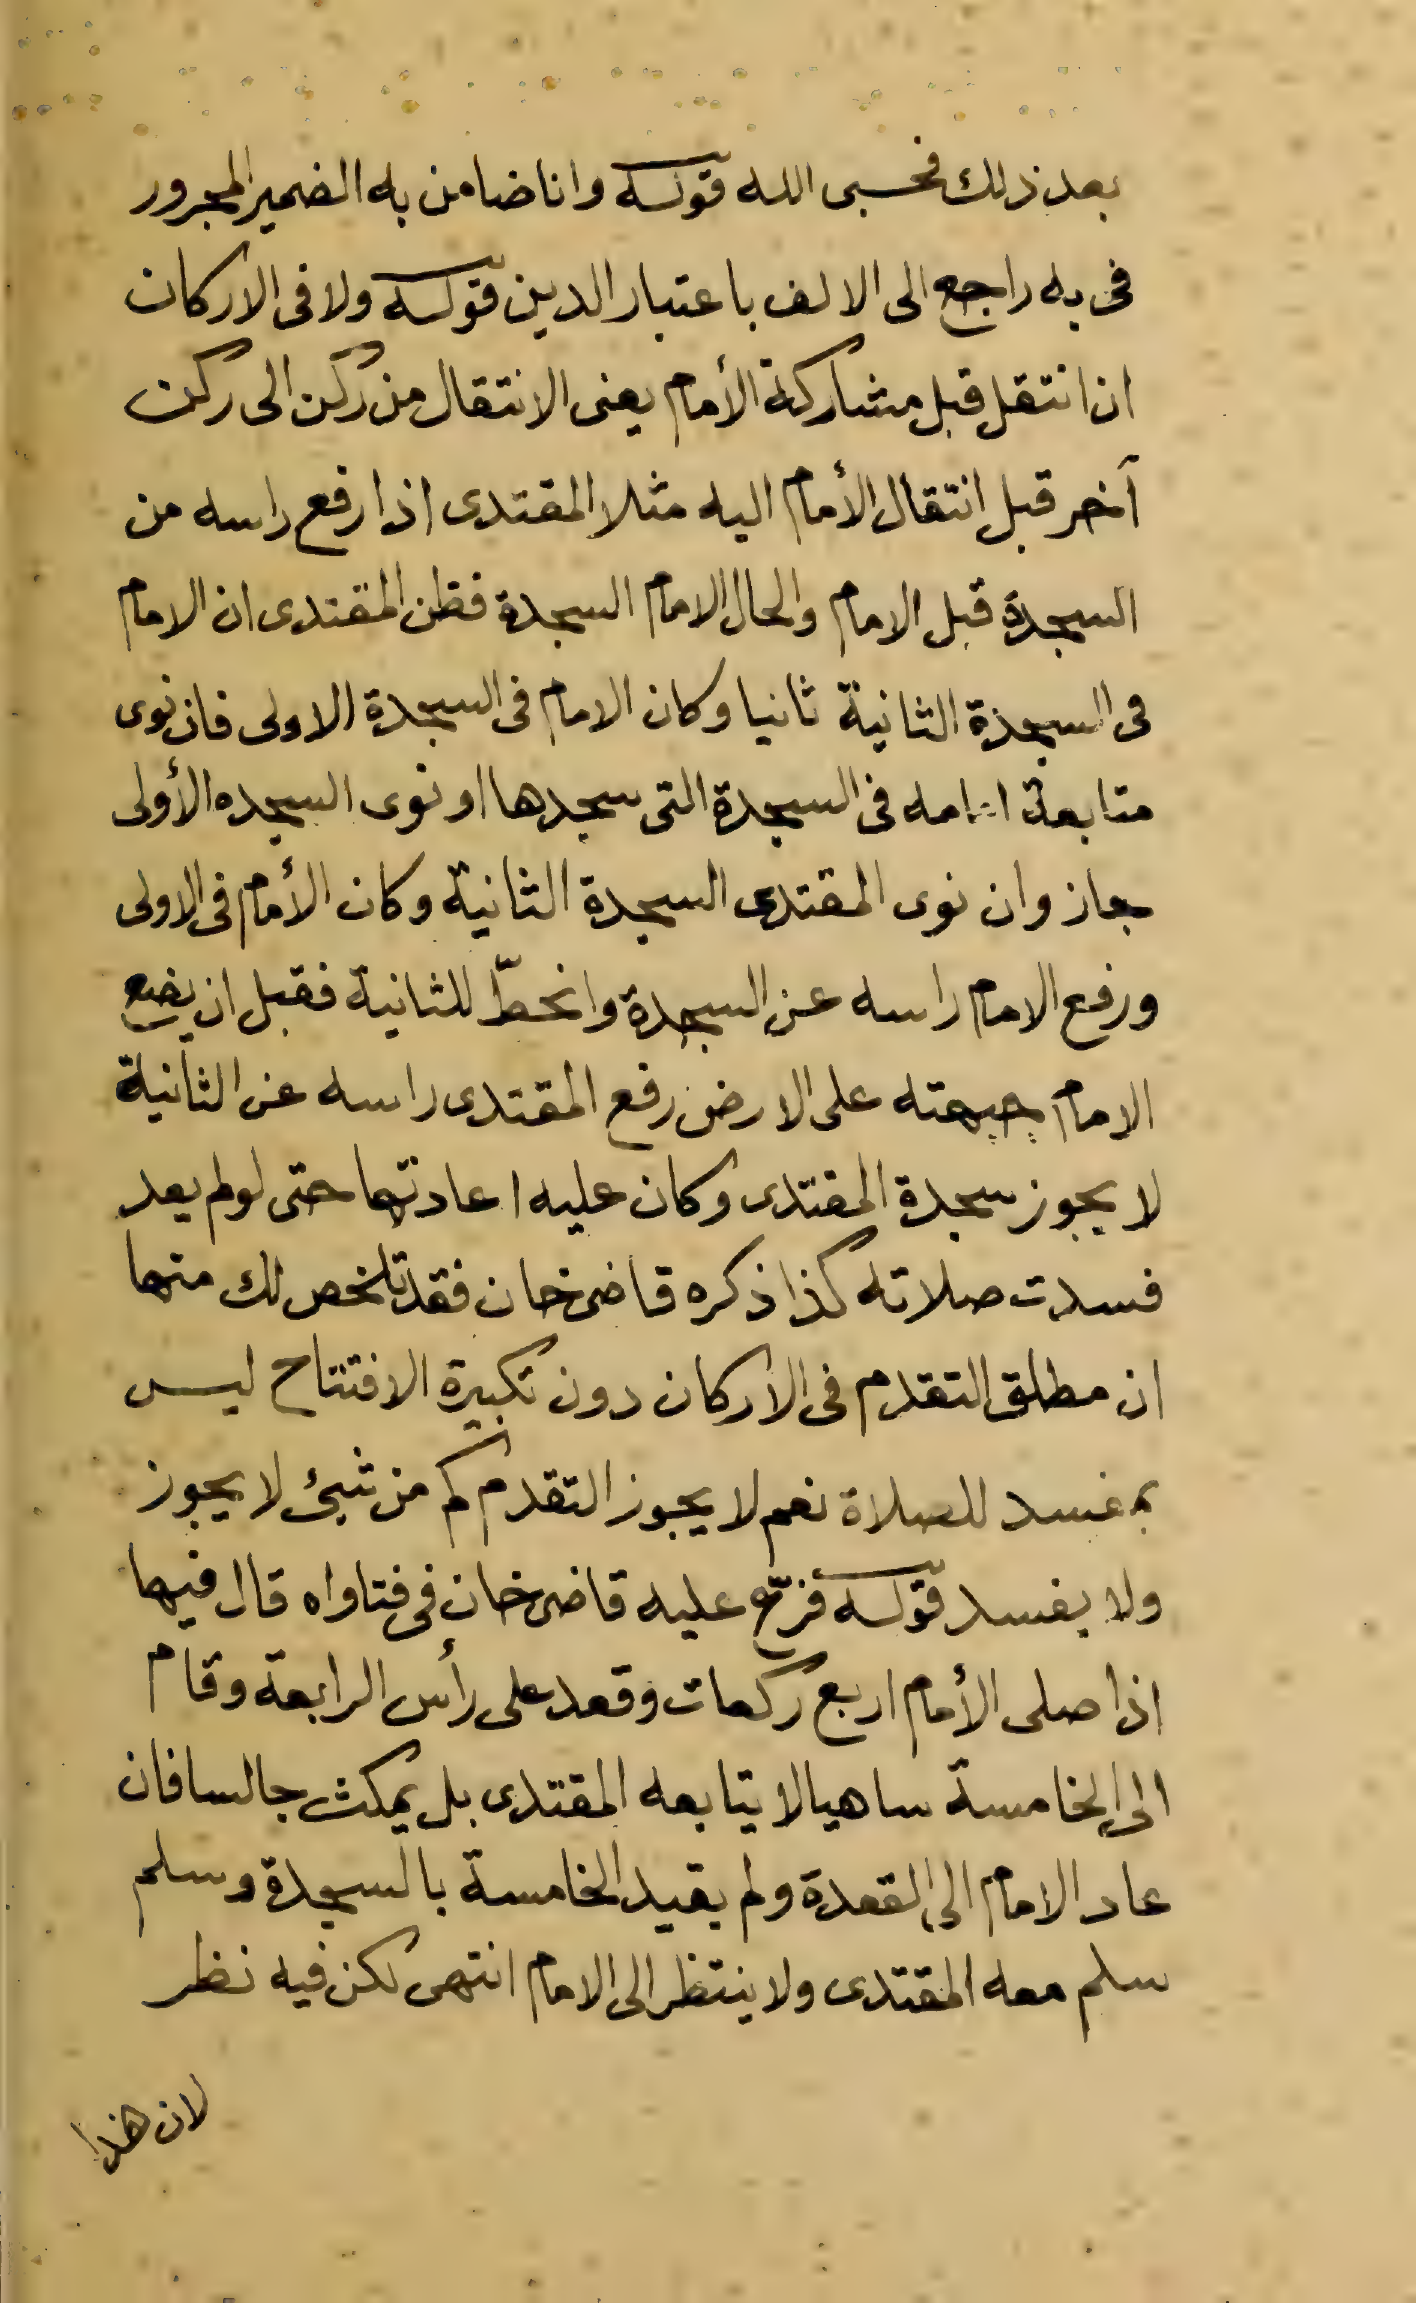 بعد ذلك فحسبى الله قوله وانا ضامن به الضمير المجرور
فى به راجع الى الالف باعتبار الدين قوله ولا فى الاركان
ان انتقل قبل مشاركة الأمام يعنى الانتقال من ركن الى ركن
آخر قبل انتقال الأمام اليه مثلا المقتدى اذا رفع راسه من
السجدة قبل الامام والحال الامام السجدة فظن المقتدى ان الامام
فى السجدة الثانية ثانيا وكان الامام فى السجدة الاولى فان نوى
متابعة امامه فى السجدة التى سجدها او نوى السجده الأولى
جاز وان نوى المقتدى السجدة الثانية وكان الأمام فى الاولى
ورفع الامام راسه عن السجدة وانحطّ للثانية فقبل ان يضع
الامام جبهته على الارض رفع المقتدى راسه عن الثانية
لا يجوز سجدة المقتدى وكان عليه اعادتها حتى لو لم يعد
فسدت صلاته كذا ذكره قاضى خان فقد تلخص لك منها
ان مطلق التقدم فى الاركان دون تكبيرة الافتتاح ليس
بمفسد للصلاة نعم لا يجوز التقدم كم من شيئ لا يجوز
ولا يفسد قوله فرّع عليه قاضى خان فى فتاواه قال فيها
اذا صلى الأمام اربع ركعات وقعد على رأس الرابعة وقام
الى الخامسة ساهيا لا يتابعه المقتدى بل يمكث جالسا فان
عاد الامام الى القعدة ولم يقيد الخامسة بالسجدة وسلم
سلم معه المقتدى ولا ينتظر الى الامام انتهى لكن فيه نظر
لان هذا